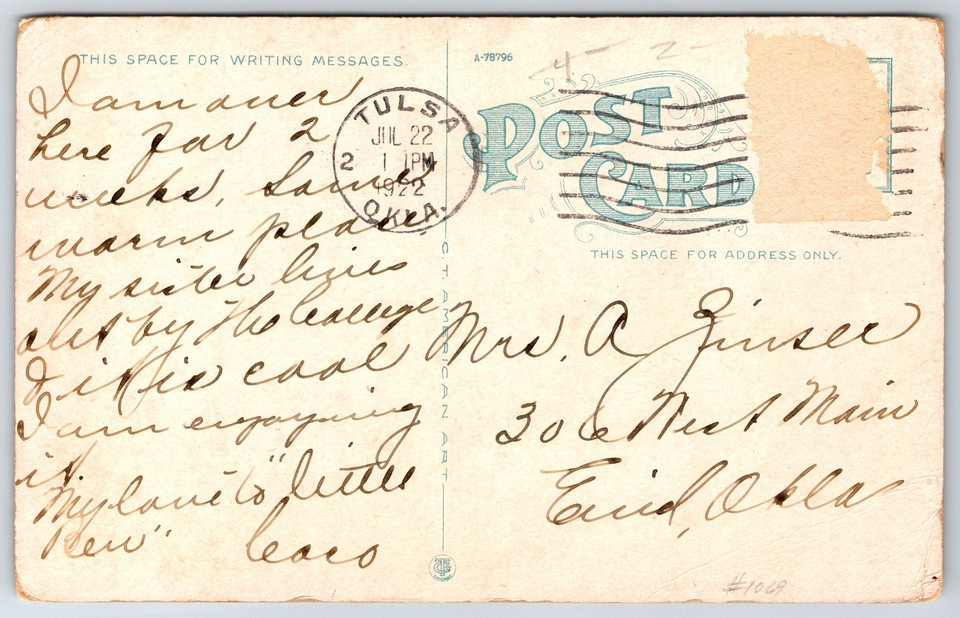 THIS SPACE FOR WRITING MESSAGES.
A-78796
4 2
I am over
here for 2
weeks, Some
warm place
My sister lives
out by the College
& it is cool
I am enjoying
it
My love to "little
" 
TULSA
JUL 22
2 1 1PM
1922
OKLA.
POST
CARD
THIS SPACE FOR ADDRESS ONLY.
C.T. AMERICAN ART
Mrs. A Zinser
306 West Main
Enid, Okla
#1069